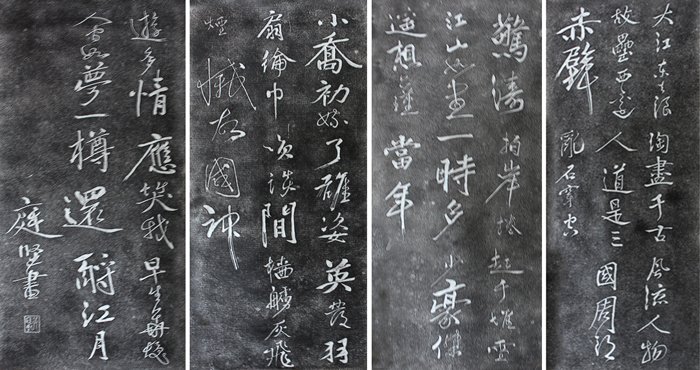 大江东去浪淘盡千古風流人物
故壘西邊人道是三國周郎
赤壁亂石穿空
驚濤拍岸捲起千堆雪
江山如畫一時多少豪傑
遥想公瑾當年
小喬初嫁了雄姿英發羽
扇綸巾笑談間檣艣灰飛
煙滅故國神
遊多情應笑我早生華髮
人間如夢一樽還酹江月
庭堅書